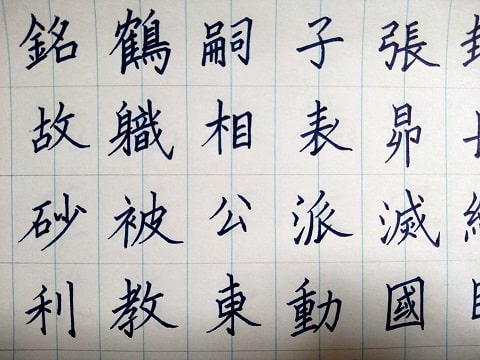 銘鶴嗣子張
故職相表昴
砂被公派滅
利教東動國